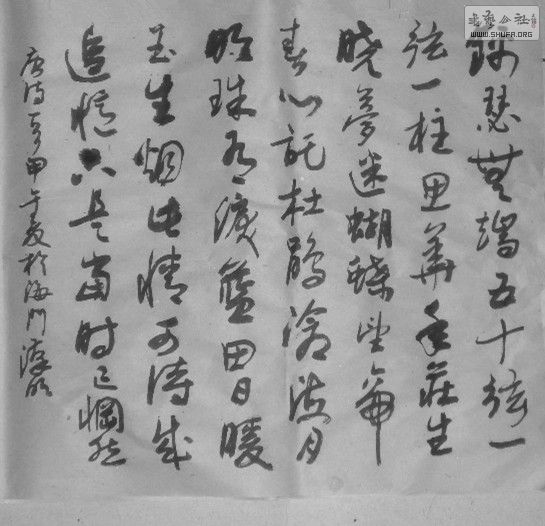 錦瑟無端五十弦一
弦一柱思華年莊生
曉夢迷蝴蝶望帝
春心託杜鵑滄海月
明珠有淚藍田日暖
玉生烟此情可待成
追憶只是當时已惘然
唐詩一首甲午夏於海門
书艺公社
WWW.SHUFA.ORG